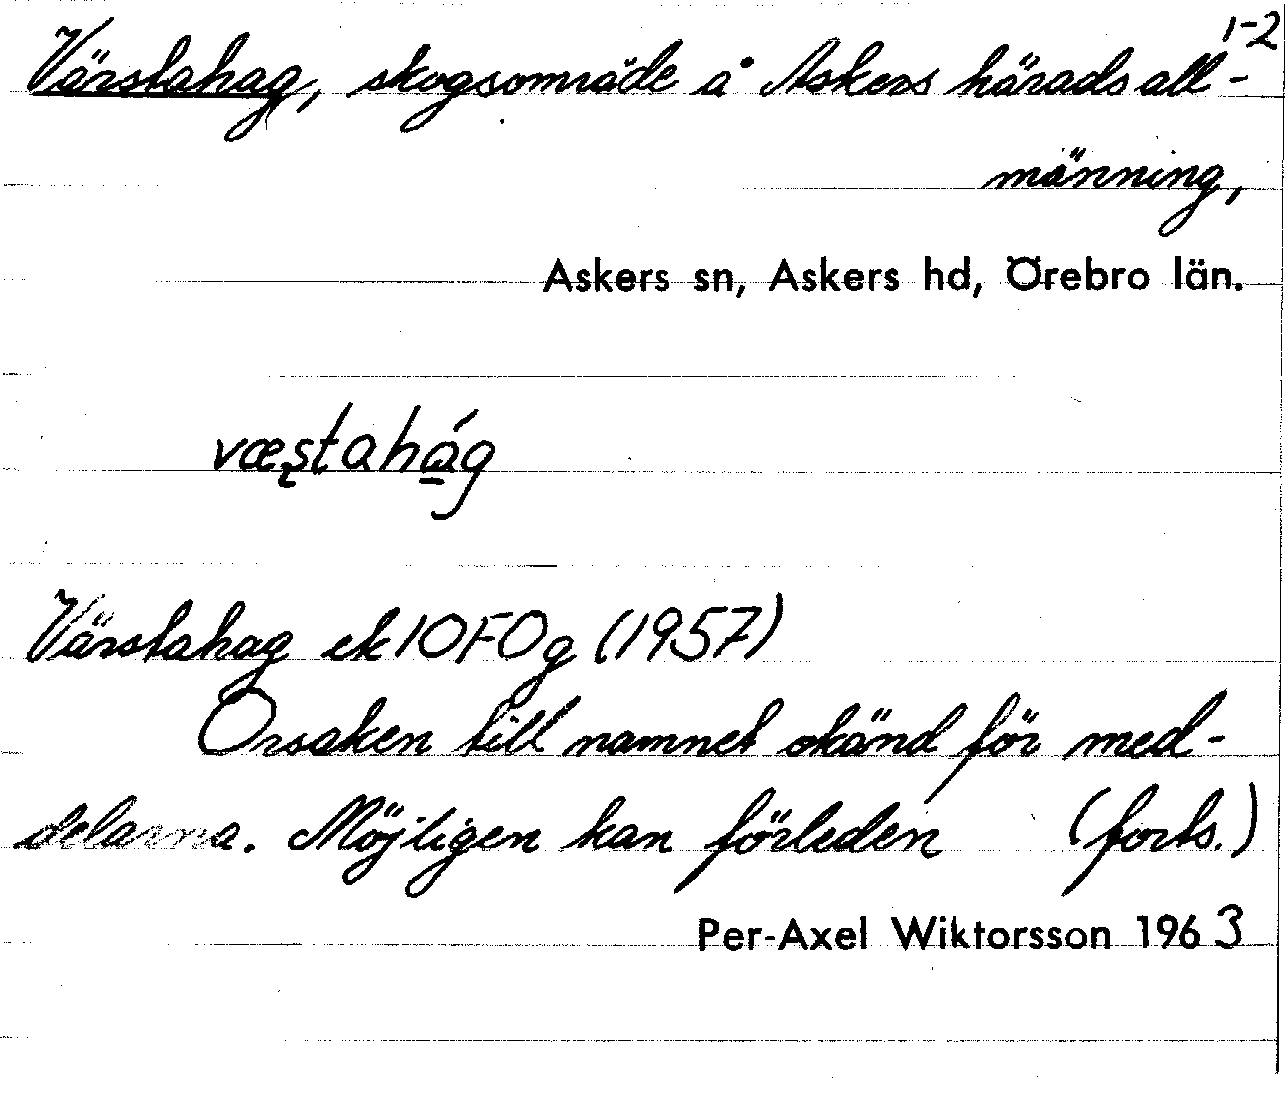 1-2
Värstahag, skogsområde å Askers häradsall-
männing,
Askers sn, Askers hd, Örebro län.
væstahág
Värstahag ek 10F0g (1957)
Orsaken till namnet okänd för med-
delarna. Möjligen kan förleden (forts.)
Per-Axel Wiktorsson 1963